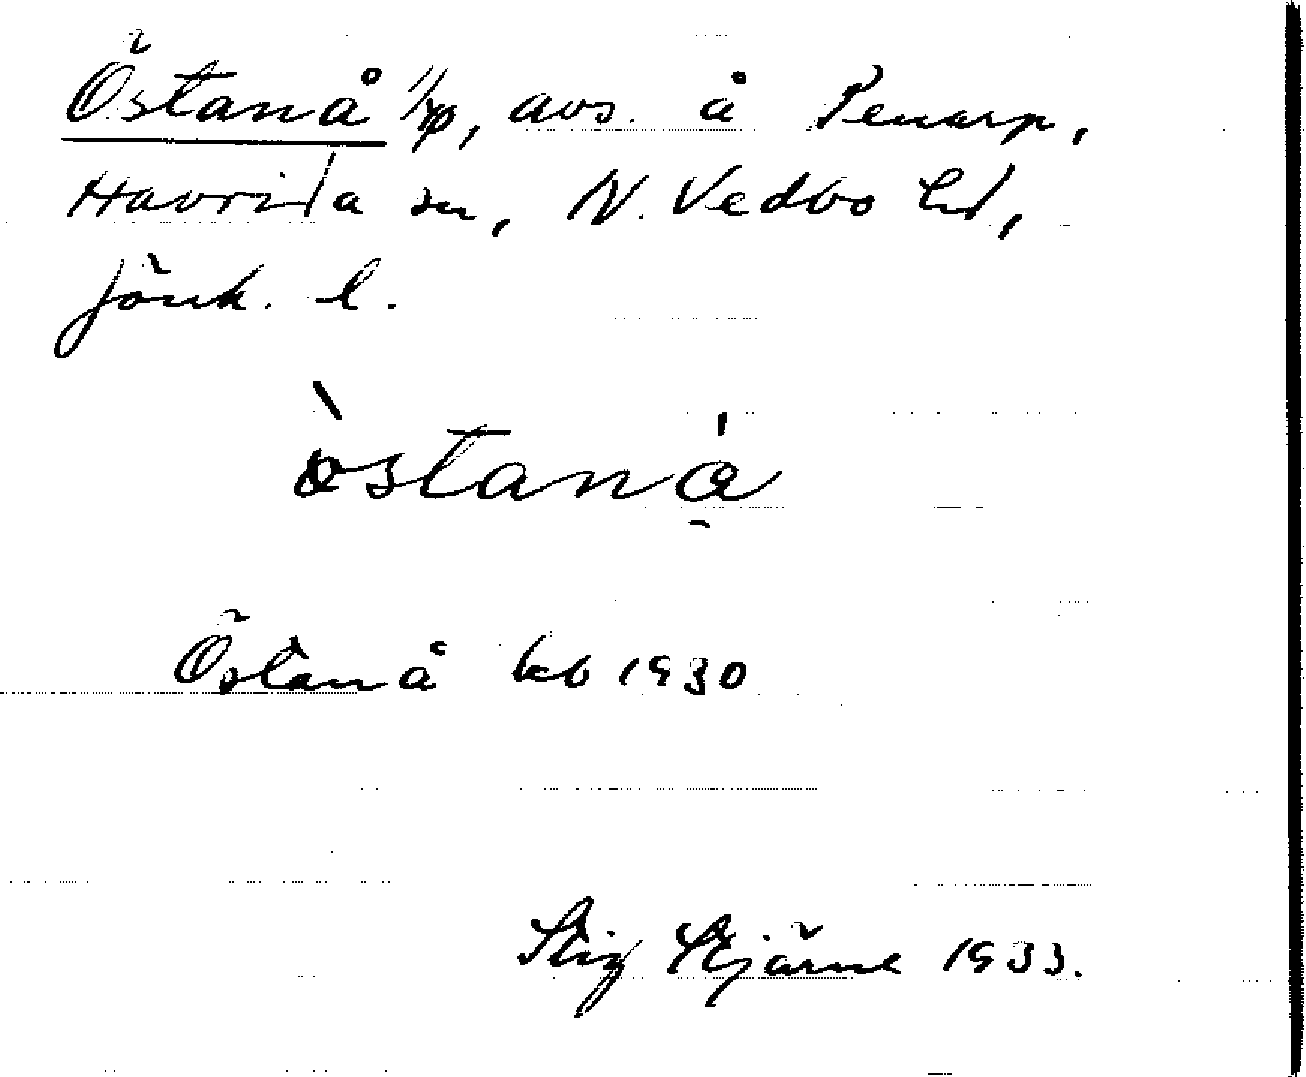 Östanå 1/4, avs. å Penarp,
Haurida sn, N. Vedbo hd,
Jönk. l.
òstanå̱
Östanå kb 1930
Stig Stjärne 1933.